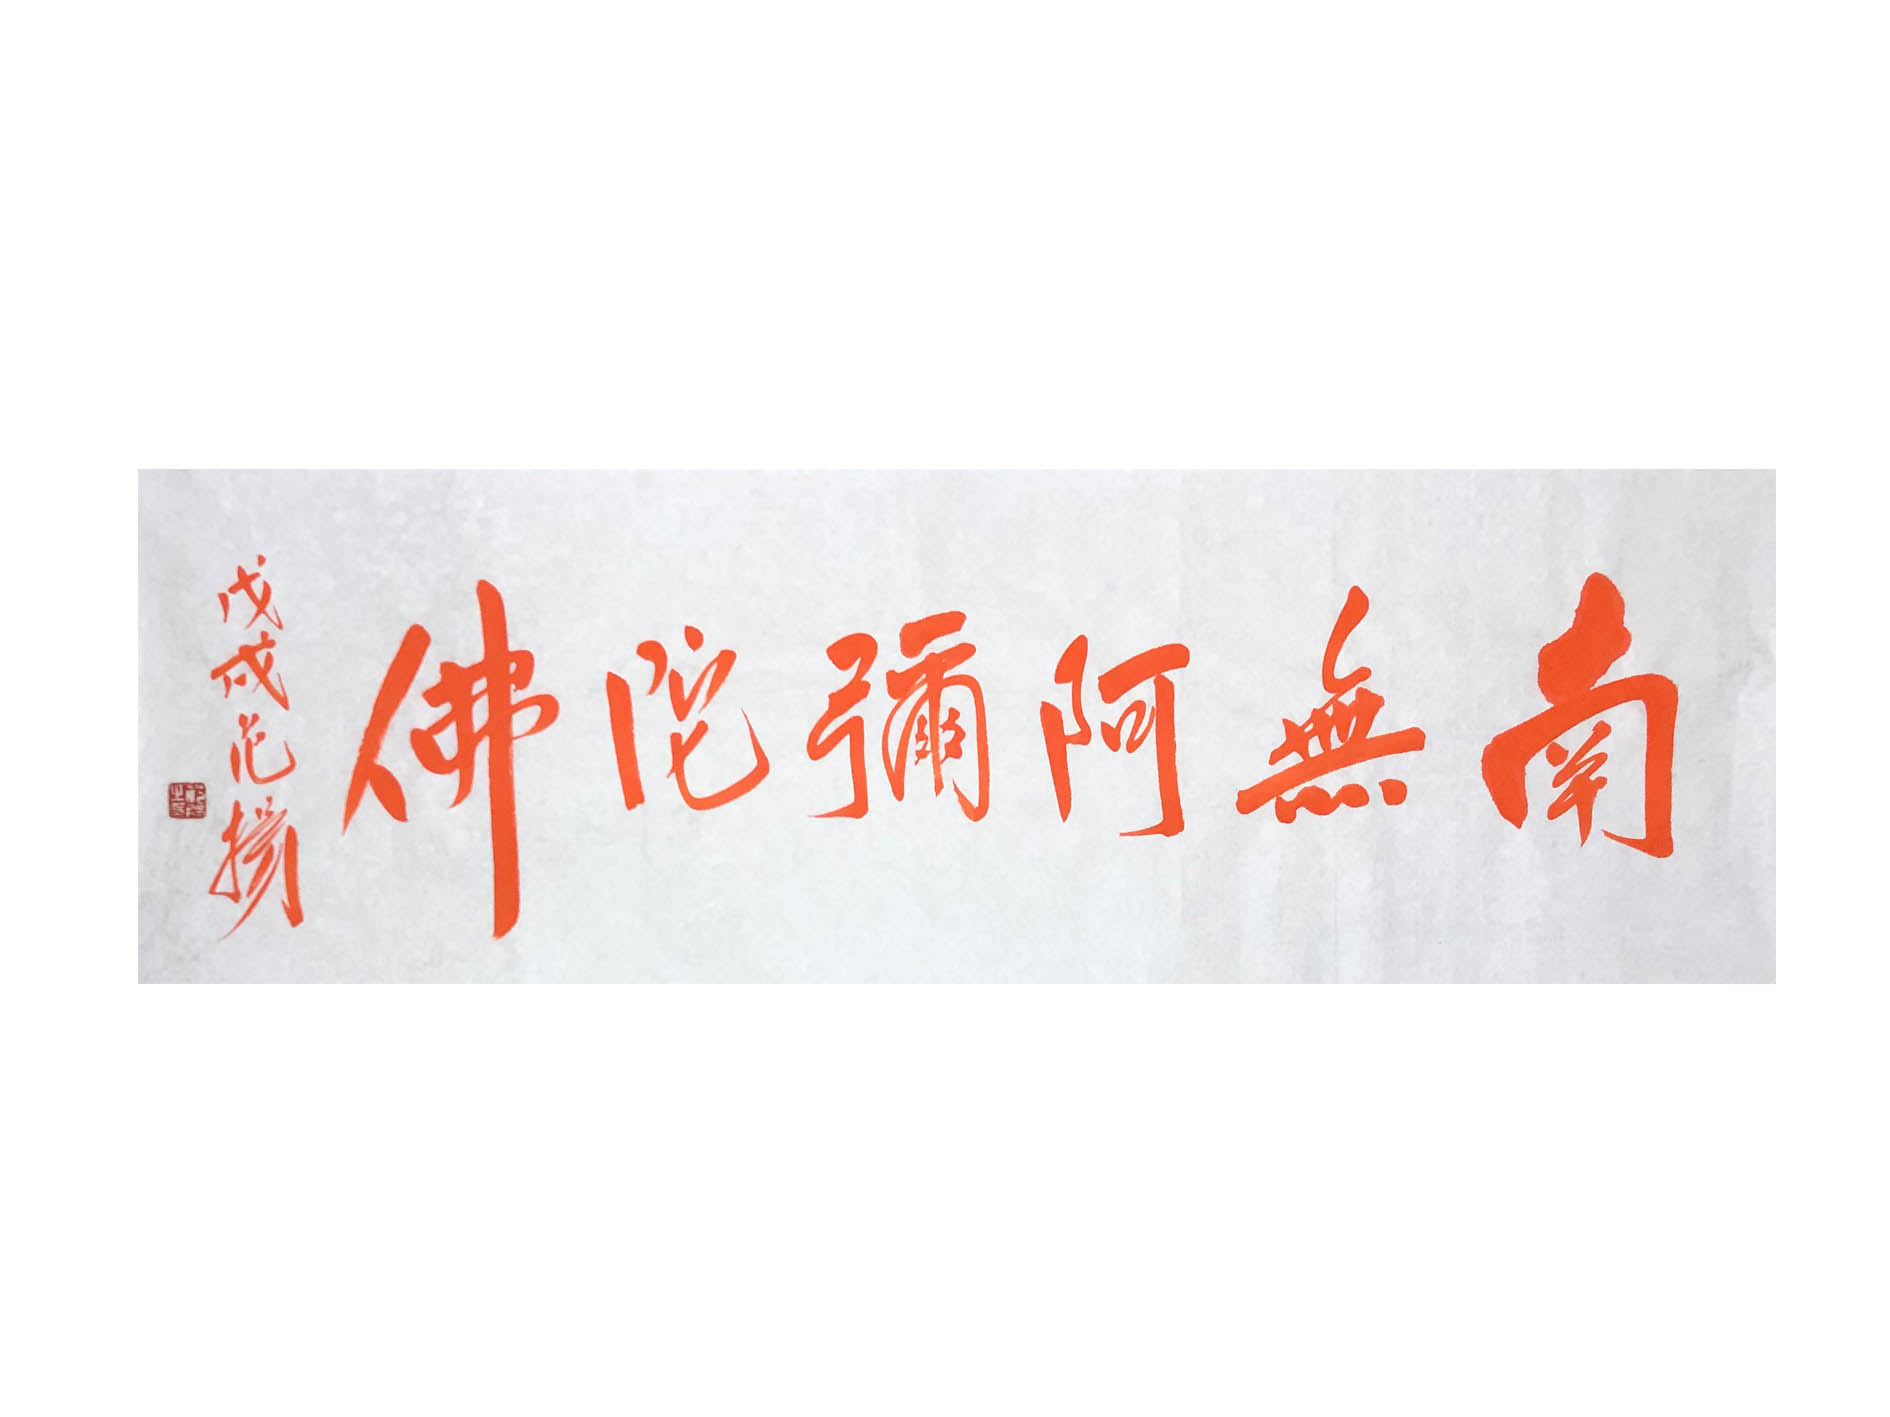 南無阿彌陀佛
戊戌范揚